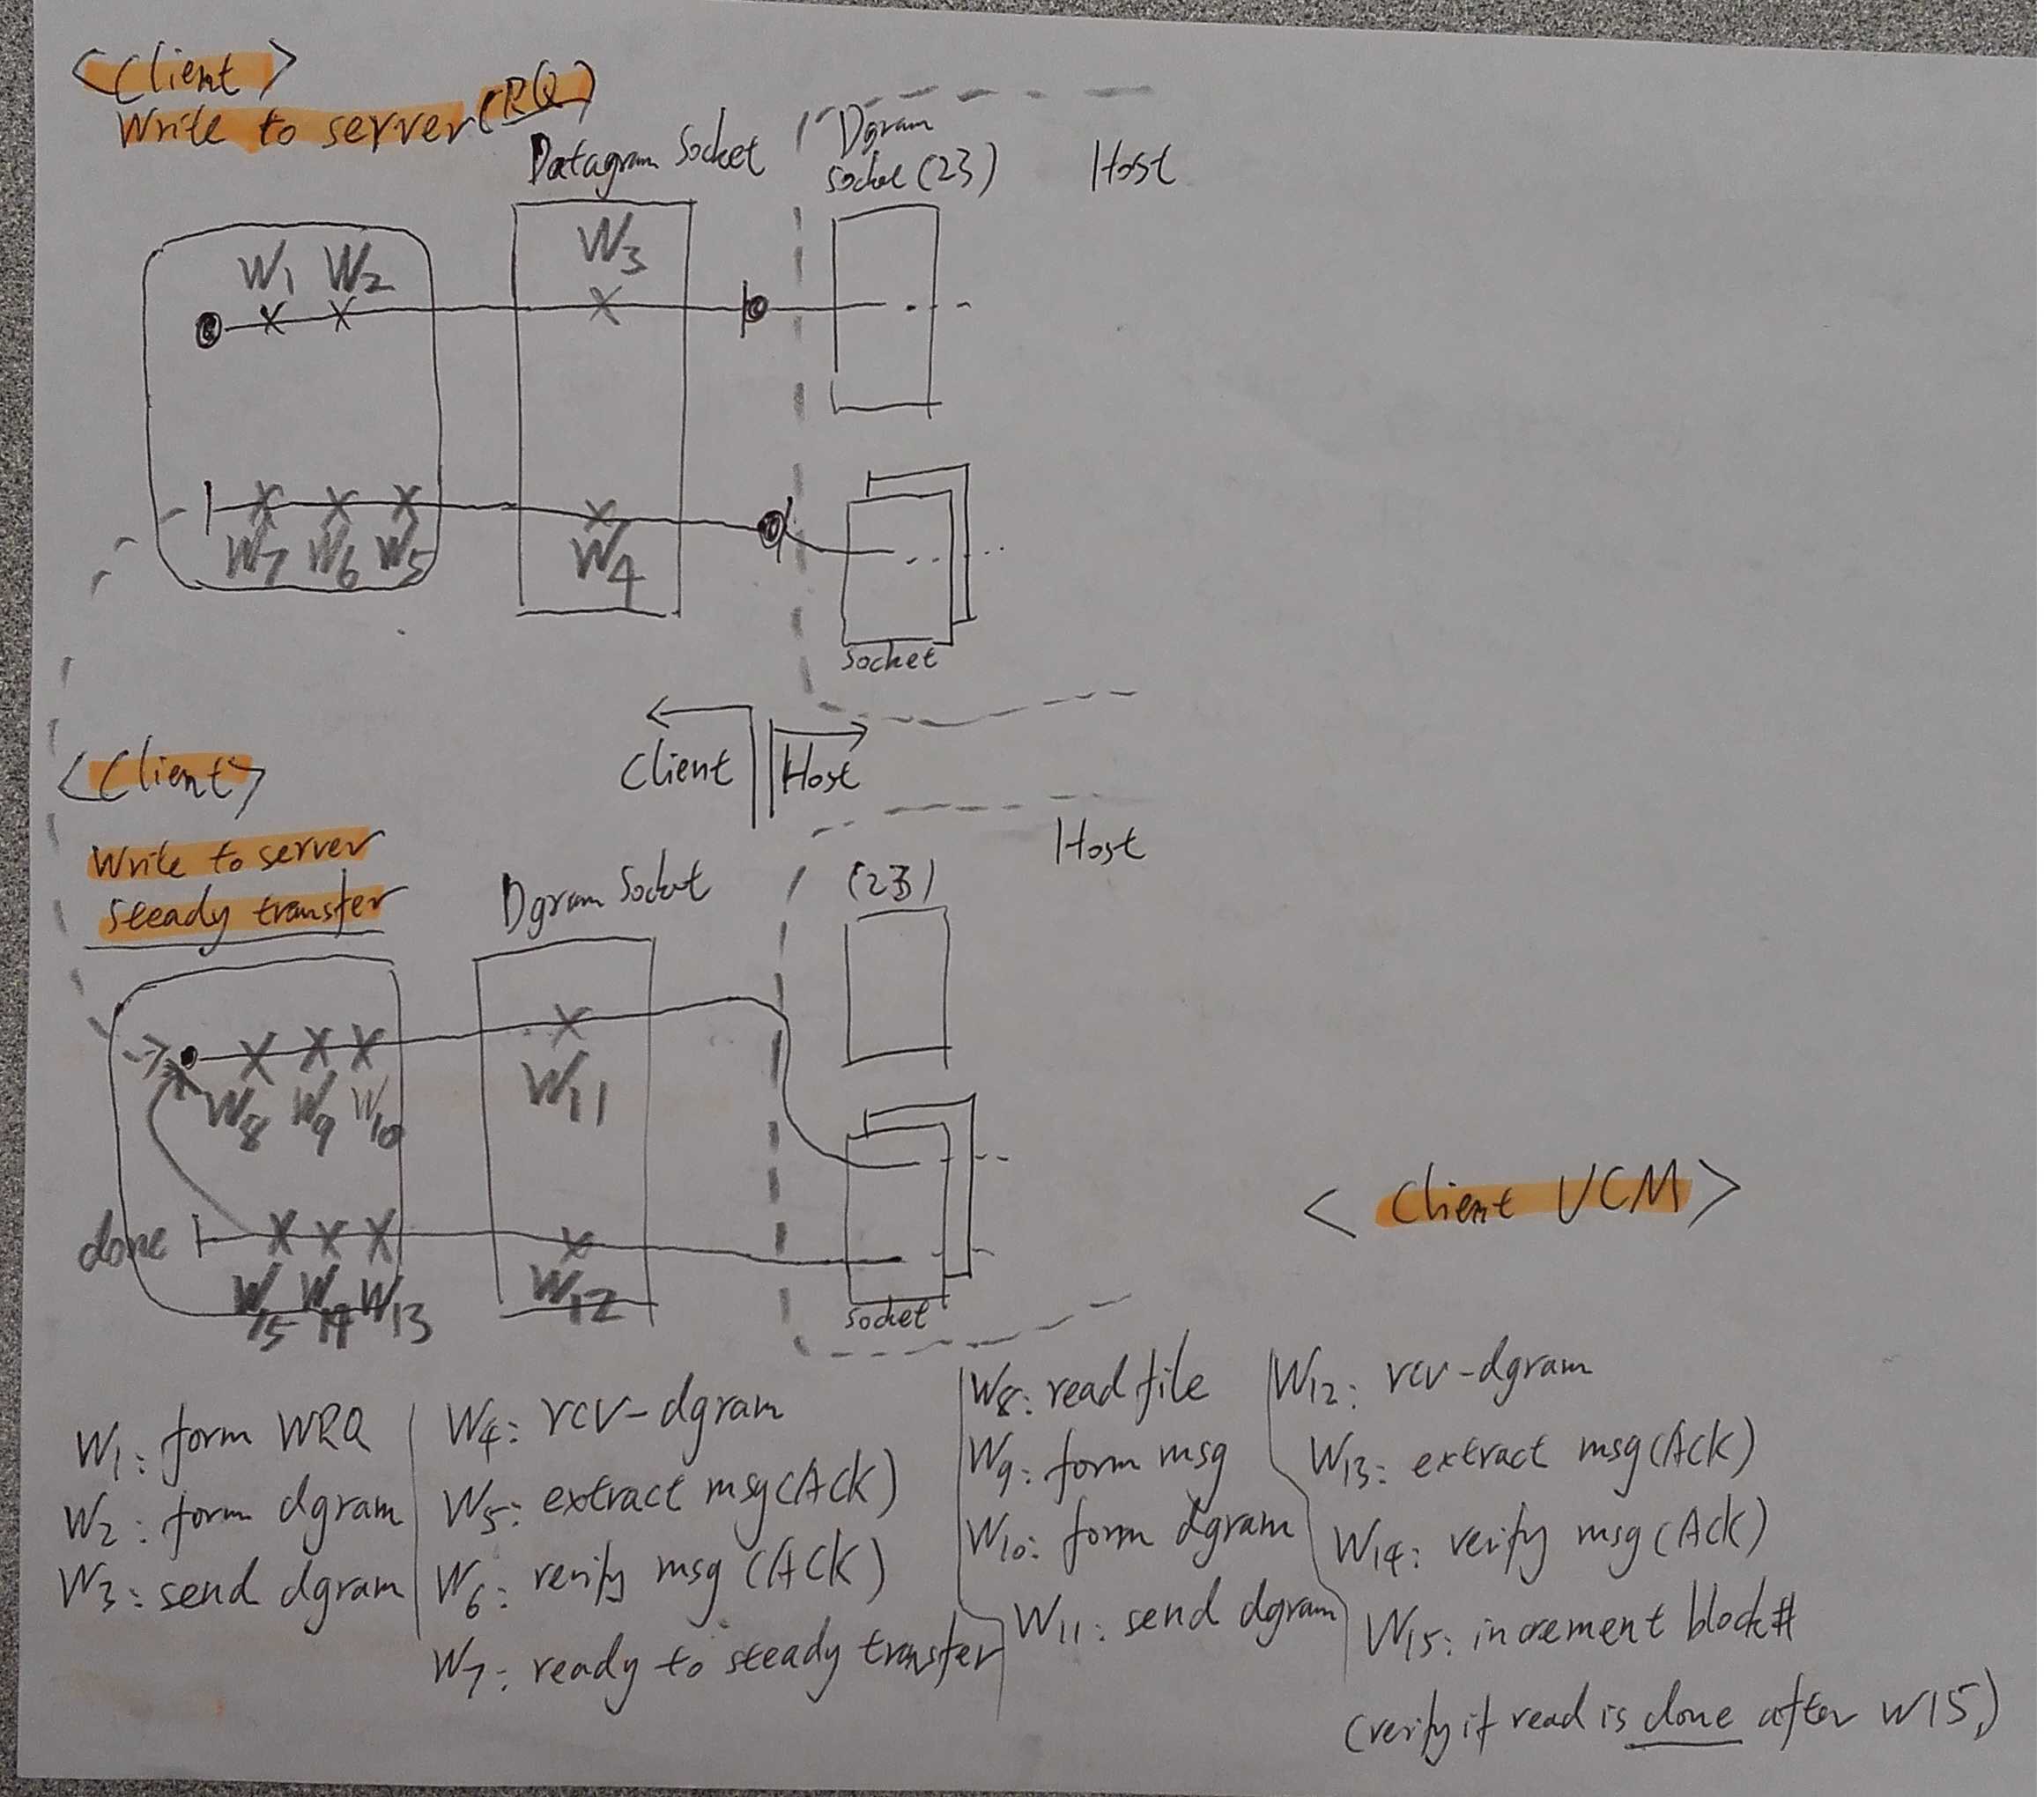 <Client>
Write to server (RQ)
Datagram Socket
Dgram
socket (23)
Host
W1 W2
W3
W7 W6 W5
W4
socket
Client
Host
<Client>
Write to server
steady transfer
Dgram Socket
(23)
Host
W8 W9 W10
W11
done
W15 W14 W13
W12
socket
<Client UCM>
W1: form WRQ
W2: form dgram
W3: send dgram
W4: rcv-dgram
W5: extract msg (ACK)
W6: verify msg (ACK)
W7: ready to steady transfer
W8: read file
W9: form msg
W10: form dgram
W11: send dgram
W12: rcv-dgram
W13: extract msg (Ack)
W14: verify msg (Ack)
W15: increment block#
(verify if read is done after W15)